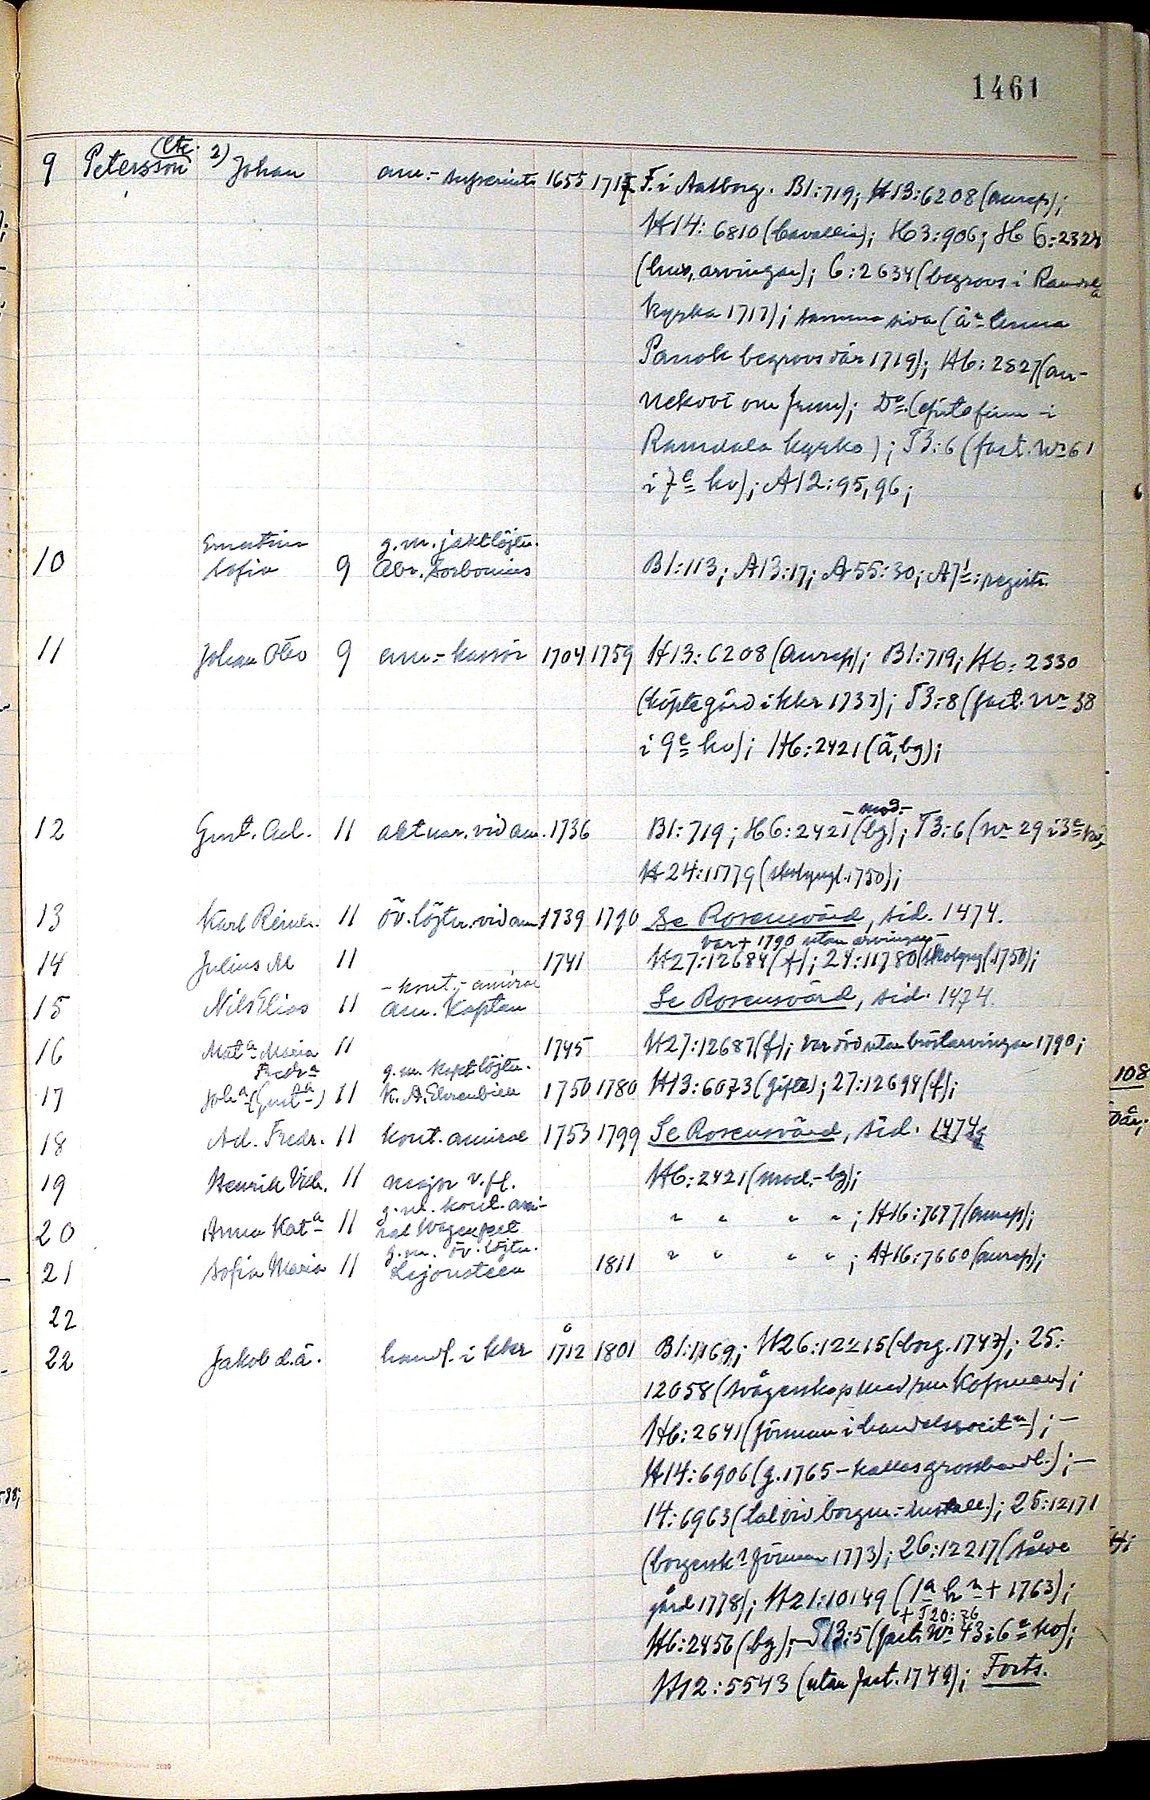 1461
9 Petersson (etc. 2) Johan am:- superint. 1655 1717 F. i Aalborg. B1:719; H13:6208 (aurep);
H14: 6810 (Cavallin); H3:906; H 6:2328
(hus, arvingar); 6:2634 (begrovs i Ramdala
kyrka 1717); samma sida (
begrovs där 1719); H6:2827 (an-
om frun); Do. (epitafium i
Ramdala kyrka); T3:6 (fast. Nr 61
i 7e kv); A12:95, 96;
Ernestina g. m. jaktlöjtn.
10 Sofia 9 Abr. Torbonius B1:113; A13:17; A55:30; registr.
11 Johan Otto 9 am:- kassör 1704 1759 H13:6208 (aurep); B1:719; H6:2330
(köpte gård i kkr 1737); T3:8 (fast. Nr 38
i 9e kv); H6:2421 (ä, bg);
mod-
12 Gust. Ad. 11 aktuar. vid am. 1736 B1:719; H6:2421 (bg); T3:6 (Nr 29 i 3e kv;
H24:11779 (1750);
13 Karl Reinh. 11 öv. löjtn. vid am 1739 1790 Se Rosensvärd, sid. 1474.
var + 1790 utan arvingar
14 Julius M 11 1741 H27:12684 (f); 24:11780 (1750);
- kont.- amiral
15 Nils Elias 11 am. kapten Se Rosensvärd, sid. 1474.
16 Mata Maria 11 1745 H27:12687 (f); var död utan bröstarvingar 1790;
Fredra g. m. kapt löjtn.
17 Joha (Gusta) 11 K. A. Ehrenbill 1750 1780 H13:6073 (gifte); 27:12694 (f);
18 Ad. Fredr. 11 kont. amiral 1753 1799 Se Rosensvärd, sid. 1474;
19 Henrik Vilh. 11 major v. fl. H6:2421 (mod.- bg);
g. m. kont. ami-
20 Anna Kata 11 ral Wagenfelt " " " " ; H16:7677 (aurep);
g. m. öv. löjtn.
21 Sofia Maria 11 Lejonsteen 1811 " " " " ; H16:7660 (aurep);
22
22 Jakob d. ä. handl. i kkr 1712 1801 B1:1169; H26:12215 (borg. 1747); 25:
12058 (svågerskap med);
H6:2641 (förman i handelssocitn); -
H14:6906 (g. 1765 - kallas grosshandl.); -
14:6963 (tal vid borgm:-install.); 25:12171
(borgersk förman 1773); 26:12217 (
gård 1778); H21:10149 (1a hn + 1763);
+ T20:76
H6:2456 (bg); - T13:5 (fast. Nr 43 i 6e kv);
H12:5543 (utan fast. 1749); Forts.
108
Där;